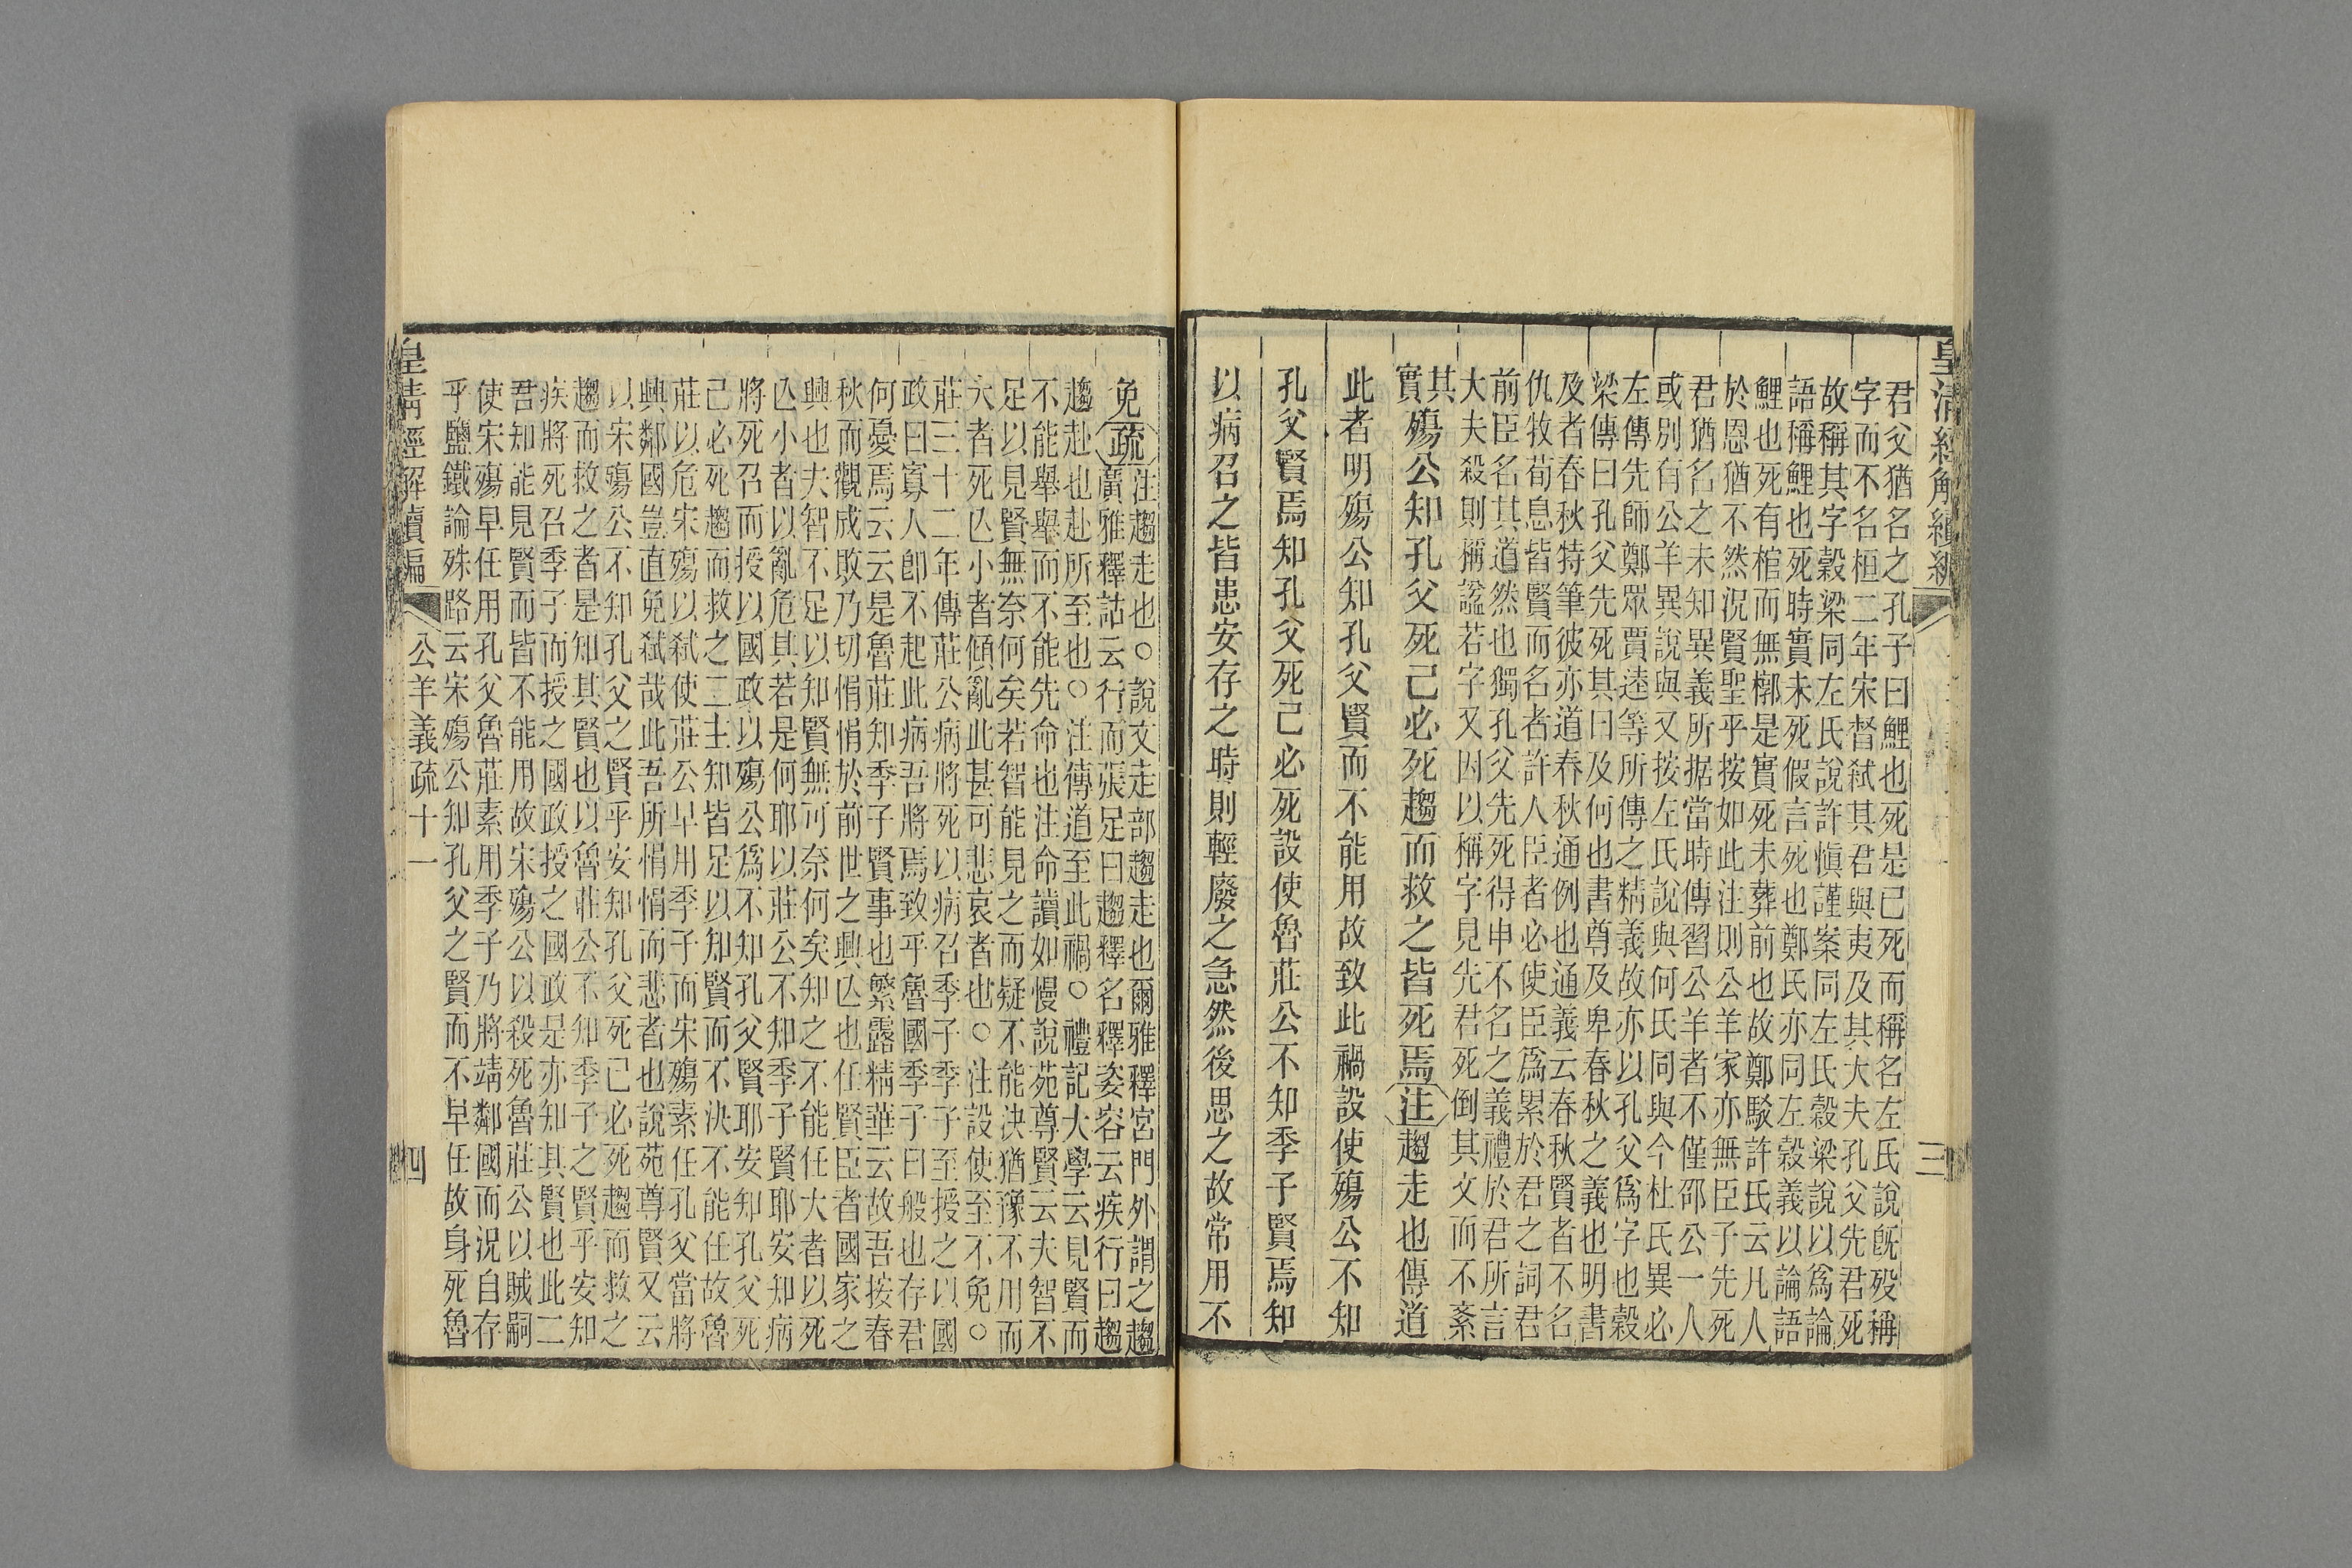 皇清經解續編
三
君父猶名之孔子曰鯉也死是已死而稱名左氏說旣歿稱
字而不名桓二年宋督弑其君與夷及其大夫孔父先君死
故稱其字穀梁同左氏說許愼謹案同左氏穀梁說以爲論
語稱鯉也死時實未死假言死也鄭氏亦同左穀義以論語
鯉也死有棺而無槨是實死未葬前也故鄭駁許氏云凡人
於恩猶不然況賢聖乎按如此注則公羊家亦無臣子先死
君猶名之未知異義所据當時傳習公羊者不僅邵公一人
或別有公羊異說與又按左氏說與何氏同與今杜氏異必
左傳先師鄭眾賈逵等所傳之精義故亦以孔父爲字也穀
梁傳曰孔父先死其曰及何也書尊及卑春秋之義也明書
及者春秋特筆彼亦道春秋通例也通義云春秋賢者不名
仇牧荀息皆賢而名者許人臣者必使臣爲累於君之詞君
前臣名其道然也獨孔父先死得申不名之義禮於君所言
大夫殺則稱諡若字又因以稱字見先君死倒其文而不紊
其
實
殤公知孔父死己必死趨而救之皆死焉注趨走也傳道
此者明殤公知孔父賢而不能用故致此禍設使殤公不知
孔父賢焉知孔父死己必死設使魯莊公不知季子賢焉知
以病召之皆患安存之時則輕廢之急然後思之故常用不
免疏注趨走也○說文走部趨走也爾雅釋宮門外謂之趨
廣雅釋詁云行而張足曰趨釋名釋姿容云疾行曰趨
趨赴也赴所至也○注傳道至此禍○禮記大學云見賢而
不能舉舉而不能先命也注命讀如慢說苑尊賢云夫智不
足以見賢無奈何矣若智能見之而疑不能決猶豫不用而
大者死亾小者傾亂此甚可悲哀者也○注設使至不免○
莊三十二年傳莊公病將死以病召季子季子至授之以國
政曰寡人卽不起此病吾將焉致乎魯國季子曰般也存君
何憂焉云云是魯莊知季子賢事也繁露精華云故吾按春
秋而觀成敗乃切悁悁於前世之興亾也任賢臣者國家之
興也夫智不足以知賢無可奈何矣知之不能任大者以死
亾小者以亂危其若是何耶以莊公不知季子賢耶安知病
將死召而授以國政以殤公爲不知孔父賢耶安知孔父死
己必死趨而救之二主知皆足以知賢而不決不能任故魯
莊以危宋殤以弑使莊公早用季子而宋殤素任孔父當將
興鄰國豈直免弑哉此吾所悁悁而悲者也說苑尊賢又云
以宋殤公不知孔父之賢乎安知孔父死己必死趨而救之
趨而救之者是知其賢也以魯莊公不知季子之賢乎安知
疾將死召季子而授之國政授之國政是亦知其賢也此二
君知能見賢而皆不能用故宋殤公以殺死魯莊公以賊嗣
使宋殤早任用孔父魯莊素用季子乃將靖鄰國而況自存
乎鹽鐵論殊路云宋殤公知孔父之賢而不早任故身死魯
皇清經解續編
公羊義疏十一
四